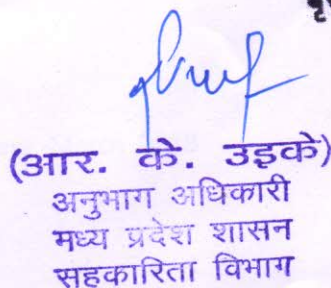 (आर. के. उइके)
अनुभाग अधिकारी
मध्य प्रदेश शासन
सहकारिता विभाग